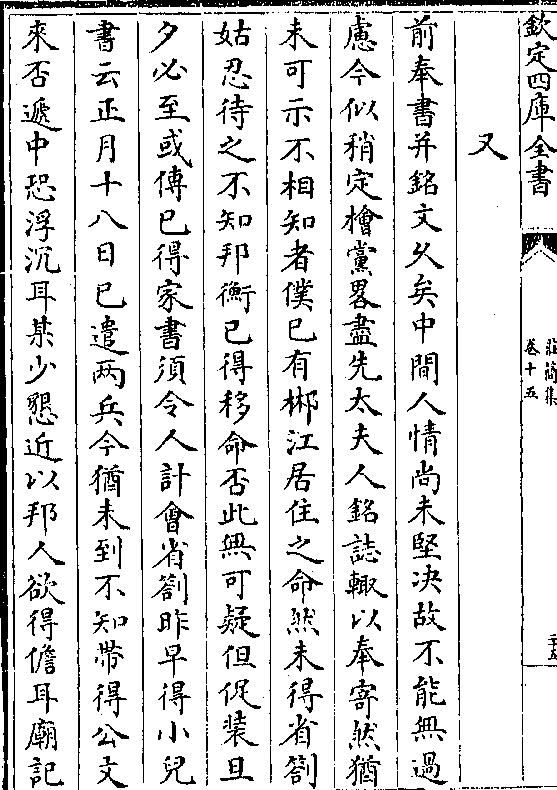 欽定四庫全書
莊簡集
卷十五
又
前奉書并銘文久矣中間人情尚未堅决故不能無過
慮今似稍定檜黨畧盡先太夫人銘誌輙以奉寄然猶
未可示不相知者僕已有郴江居住之命然未得省劄
姑忍待之不知邦衡已得移命否此無可疑但促裝旦
夕必至或傳已得家書須令人計會省劄昨早得小兒
書云正月十八日已遣两兵今猶未到不知帶得公文
來否遞中恐浮沉耳某少懇近以邦人欲得儋耳廟記